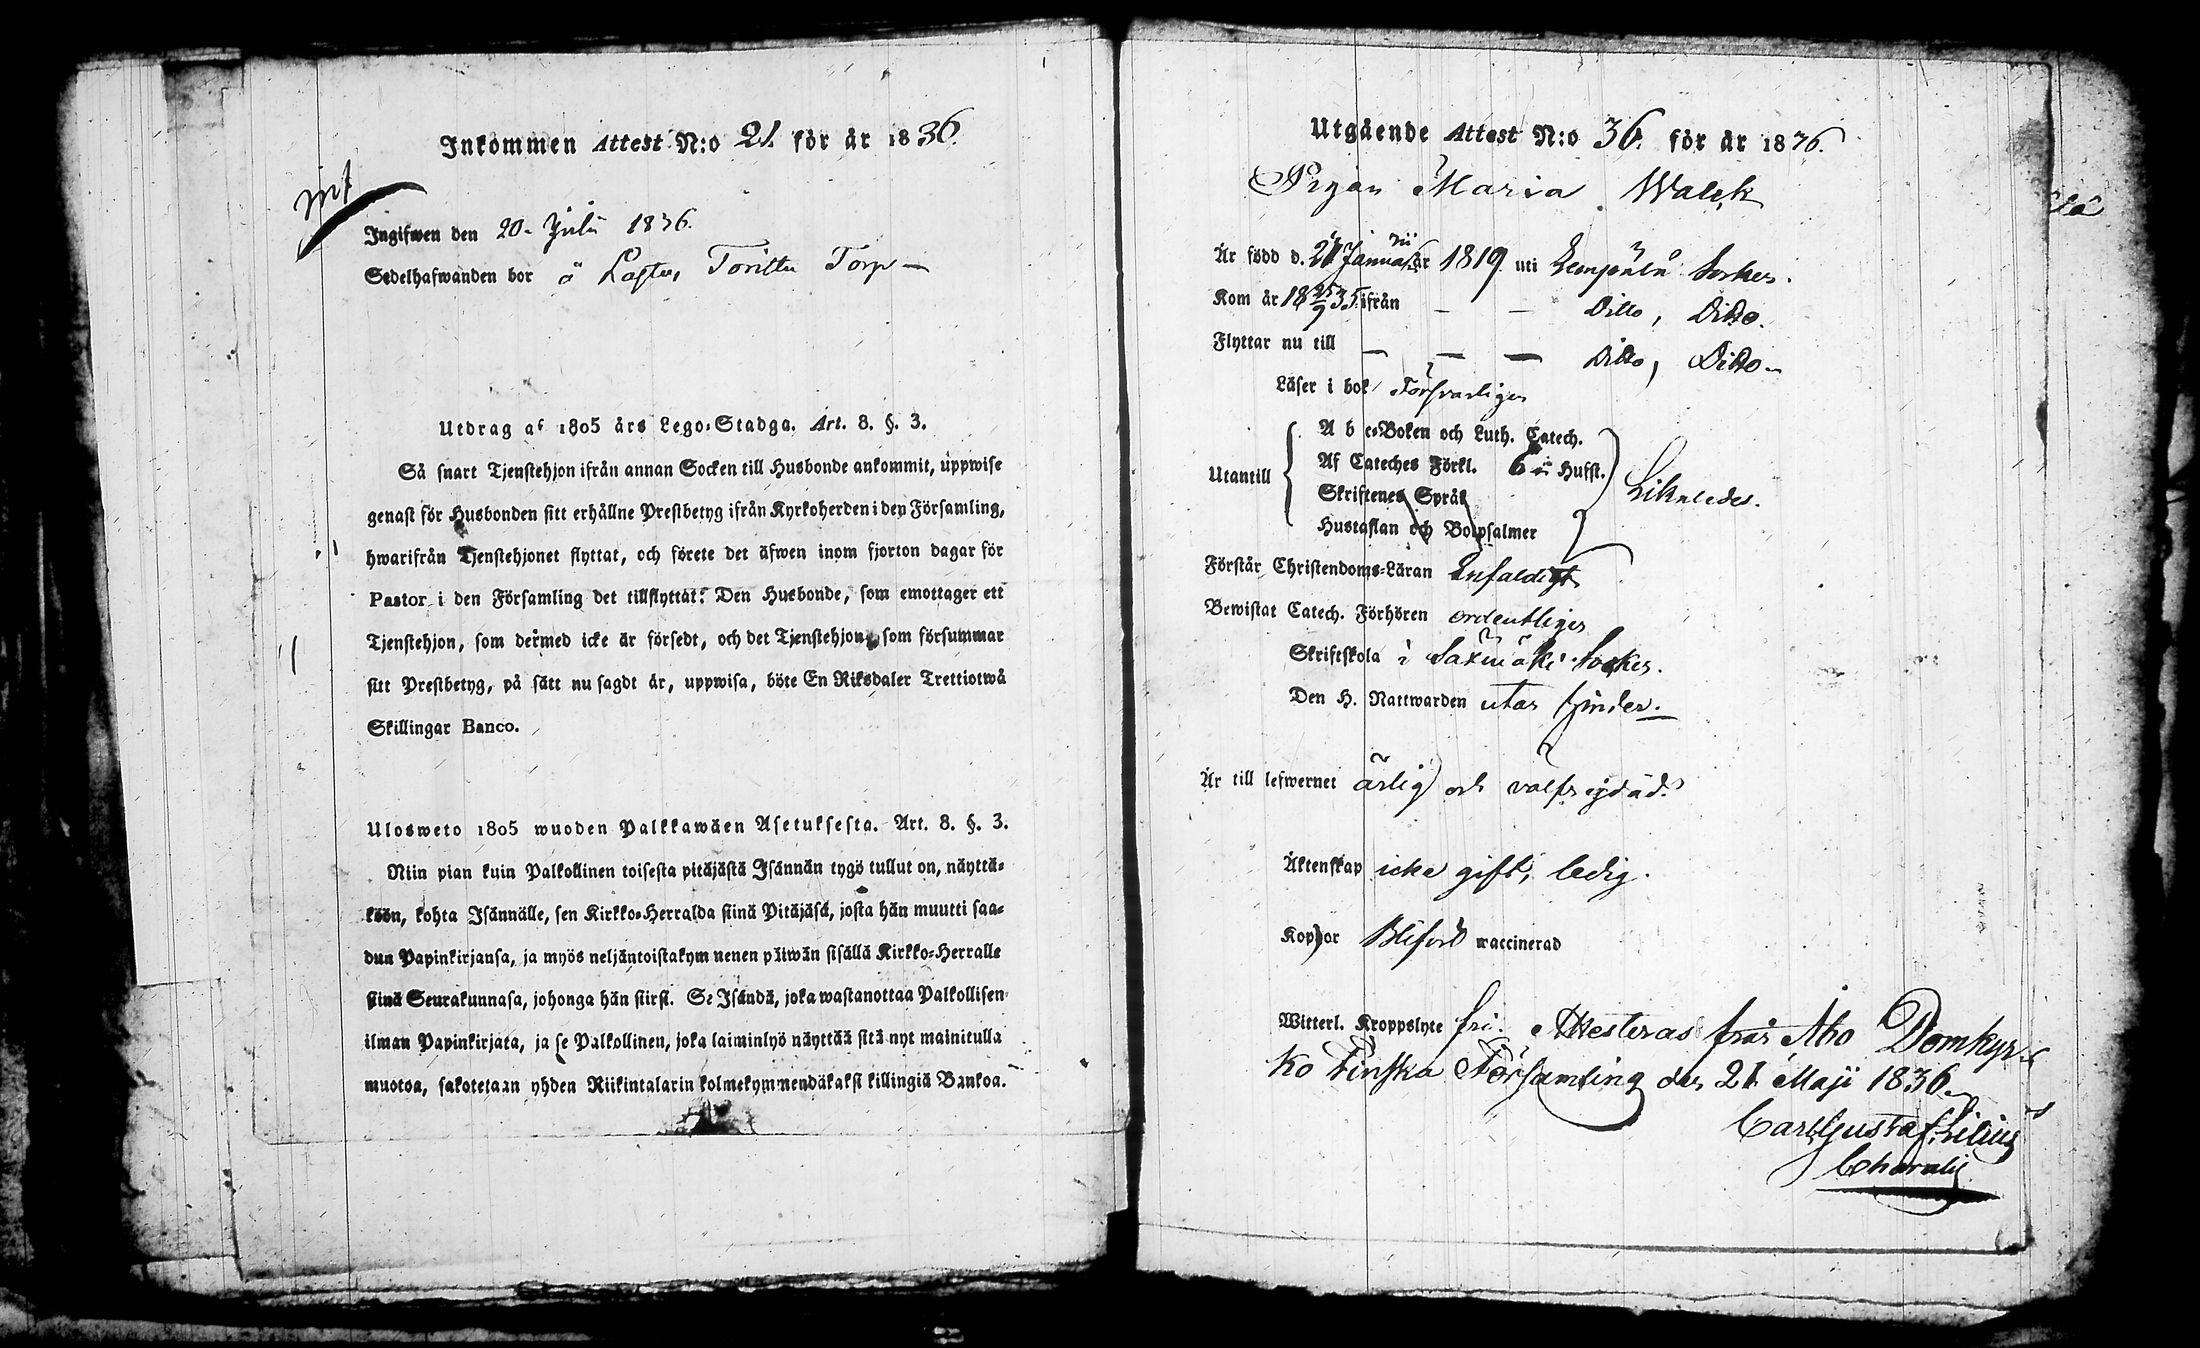 Inkommen Attest N:o 21. för år 1836.
Ingifwen den 20. Julii 1836.
Sedelhafwanden bor å Torp
Utdrag af 1805 års Lego-Stadga. Art. 8. §. 3.
Så snart Tjenstehjon ifrån annan Socken till Husbonde ankommit, uppwise
genast för Husbonden sitt erhållne Prestbetyg ifrån Kyrkoherden i den Församling,
hwarifrån Tjenstehjonet flyttat, och förete det äfwen inom fjorton dagar för
Pastor i den Församling det tillflyttat. Den Husbonde, som emottager ett
Tjenstehjon, som dermed icke är försedt, och det Tjenstehjon, som försummar
sitt Prestbetyg, på sätt nu sagdt är, uppwisa, böte En Riksdaler Trettiotwå
Skillingar Banco.
Ulosweto 1805 wuoden Palkkawäen Asetuksesta. Art. 8. §. 3.
Niin pian kuin Palkollinen toisesta pitäjästä Isännän tygö tullut on, näyttä-
köön, kohta Isännälle, sen Kirkko-Herralda siinä Pitäjäsä, josta hän muutti saa-
dun Papinkirjansa, ja myös neljäntoistakymmenen päiwän sisällä Kirkko-Herralle
siinä Seurakunnasa, johonga hän siirsi. Se Isändä, joka wastanottaa Palkollisen
ilman Papinkirjata, ja se Palkollinen, joka laiminlyö näyttää sitä nyt mainitulla
muotoa, sakotetaan yhden Riikintalarin kolmekymmendäkaksi killingiä Bankoa.
Utgående Attest N:o 36. för år 1836.
Pigan Maria Walck
Är född d. 21 Januarii 1819 uti Lempäälä Socken.
Kom år 1835 ifrån — — Ditto, Ditto.
Flyttar nu till — — — Ditto, Ditto
Läser i bok Försvarligen
Utantill
A b c-Boken och Luth. Catech.
Af Cateches Förkl. 6 Hufst.
Skriftenes Språk
Hustaflan och Botpsalmer
Likaledes.
Förstår Christendoms-Läran Enfaldigt
Bewistat Catech. Förhören ordentligen
Skriftskola i Saxmäki Socken.
Den H. Nattwarden utan hinder.
Är till lefwernet ärlig och välfrejdad.
Äktenskap icke gift, ledig.
Koppor Blifvit waccinerad
Witterl. Kroppslyte fri. Attesteras från Åbo Domkyr-
ko Finska Församling den 21 Maji 1836.
Carl Gustaf Lilius